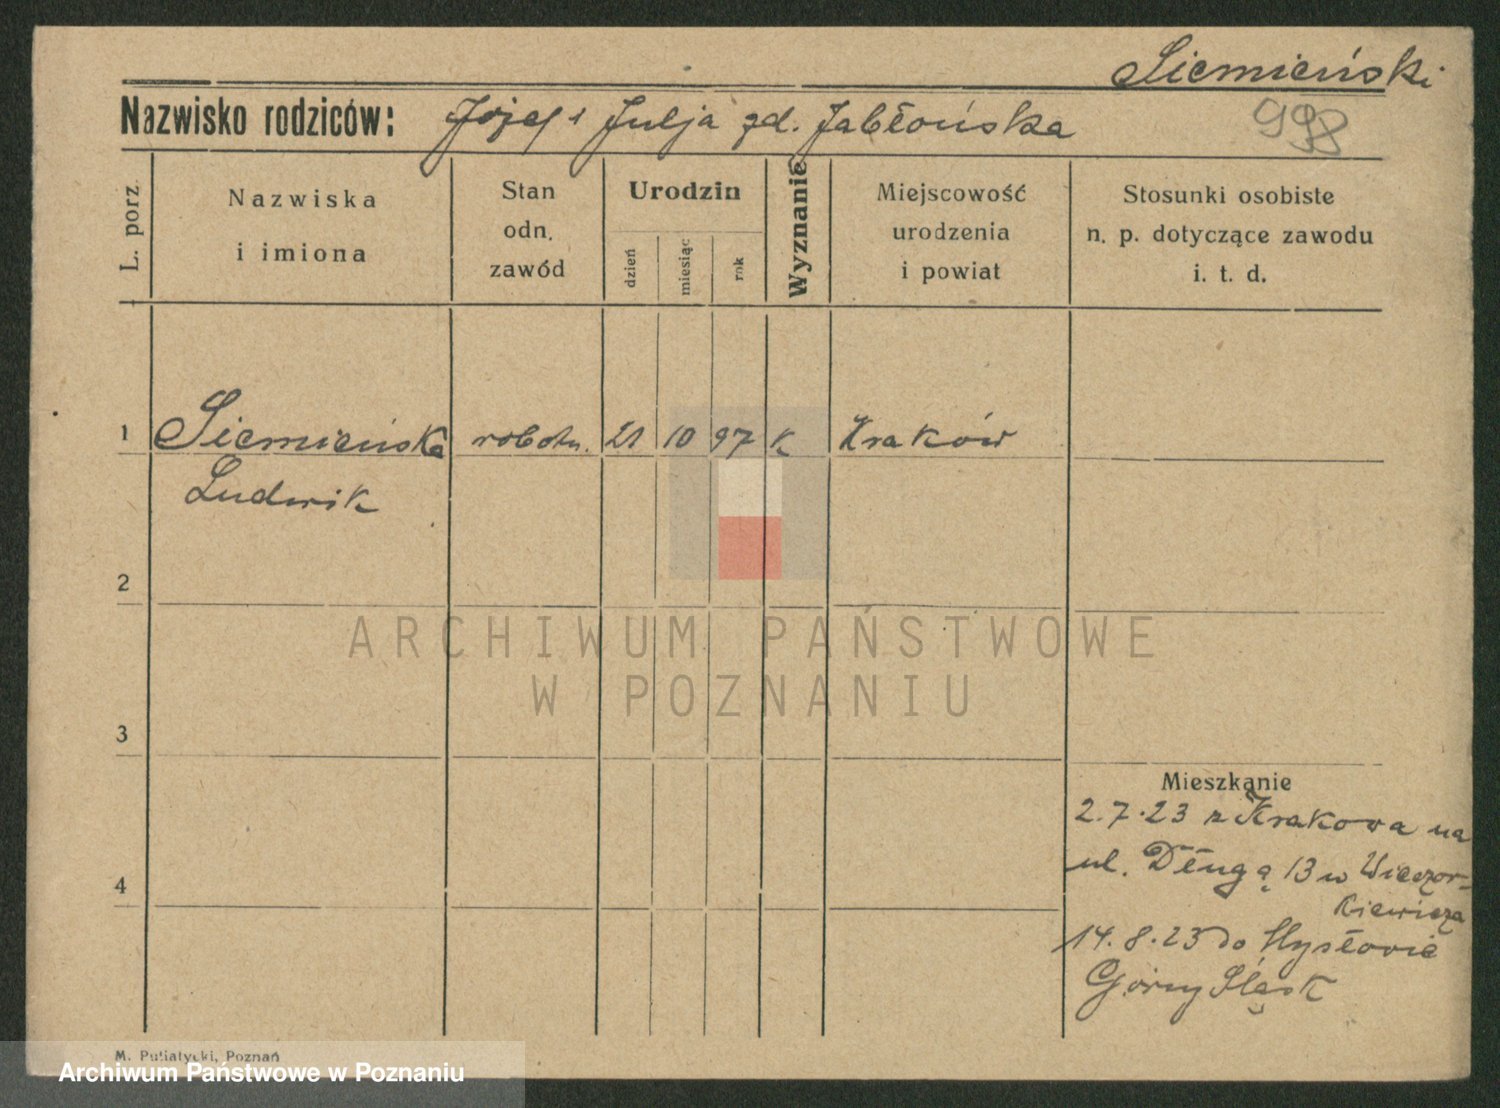 Siemieński
Nazwisko rodziców: Józef i Julja zd. Jabłońska
998
L. porz.
Nazwiska
i imiona
Stan
odn.
zawód
Urodzin
dzień
miesiąc
rok
Wyznanie
Miejscowość
urodzenia
i powiat
Stosunki osobiste
n. p. dotyczące zawodu
i. t. d.
1 Siemieński robotn. 21 10 97 K Kraków
Ludwik
2
3
4
Mieszkanie
2.7.23 z Krakowa na
ul. Długą 13 u Wieczor-
kiewicza
14.8.23 do Mysłowic
Górny Śląsk
M. Putiatycki, Poznań
ARCHIWUM PAŃSTWOWE
W POZNANIU
Archiwum Państwowe w Poznaniu